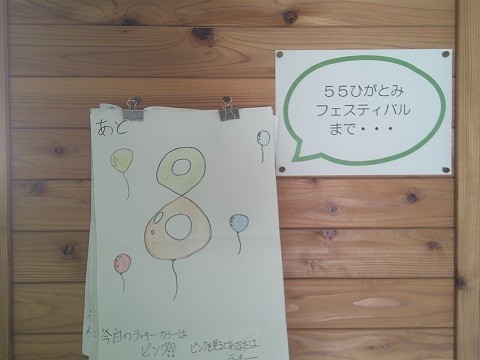 ５５ひがとみ
フェスティバル
まで・・・
あと
8
今日のラッキーカラーは
ピンク!!
ピンクを見るとあなたは
ラッキー